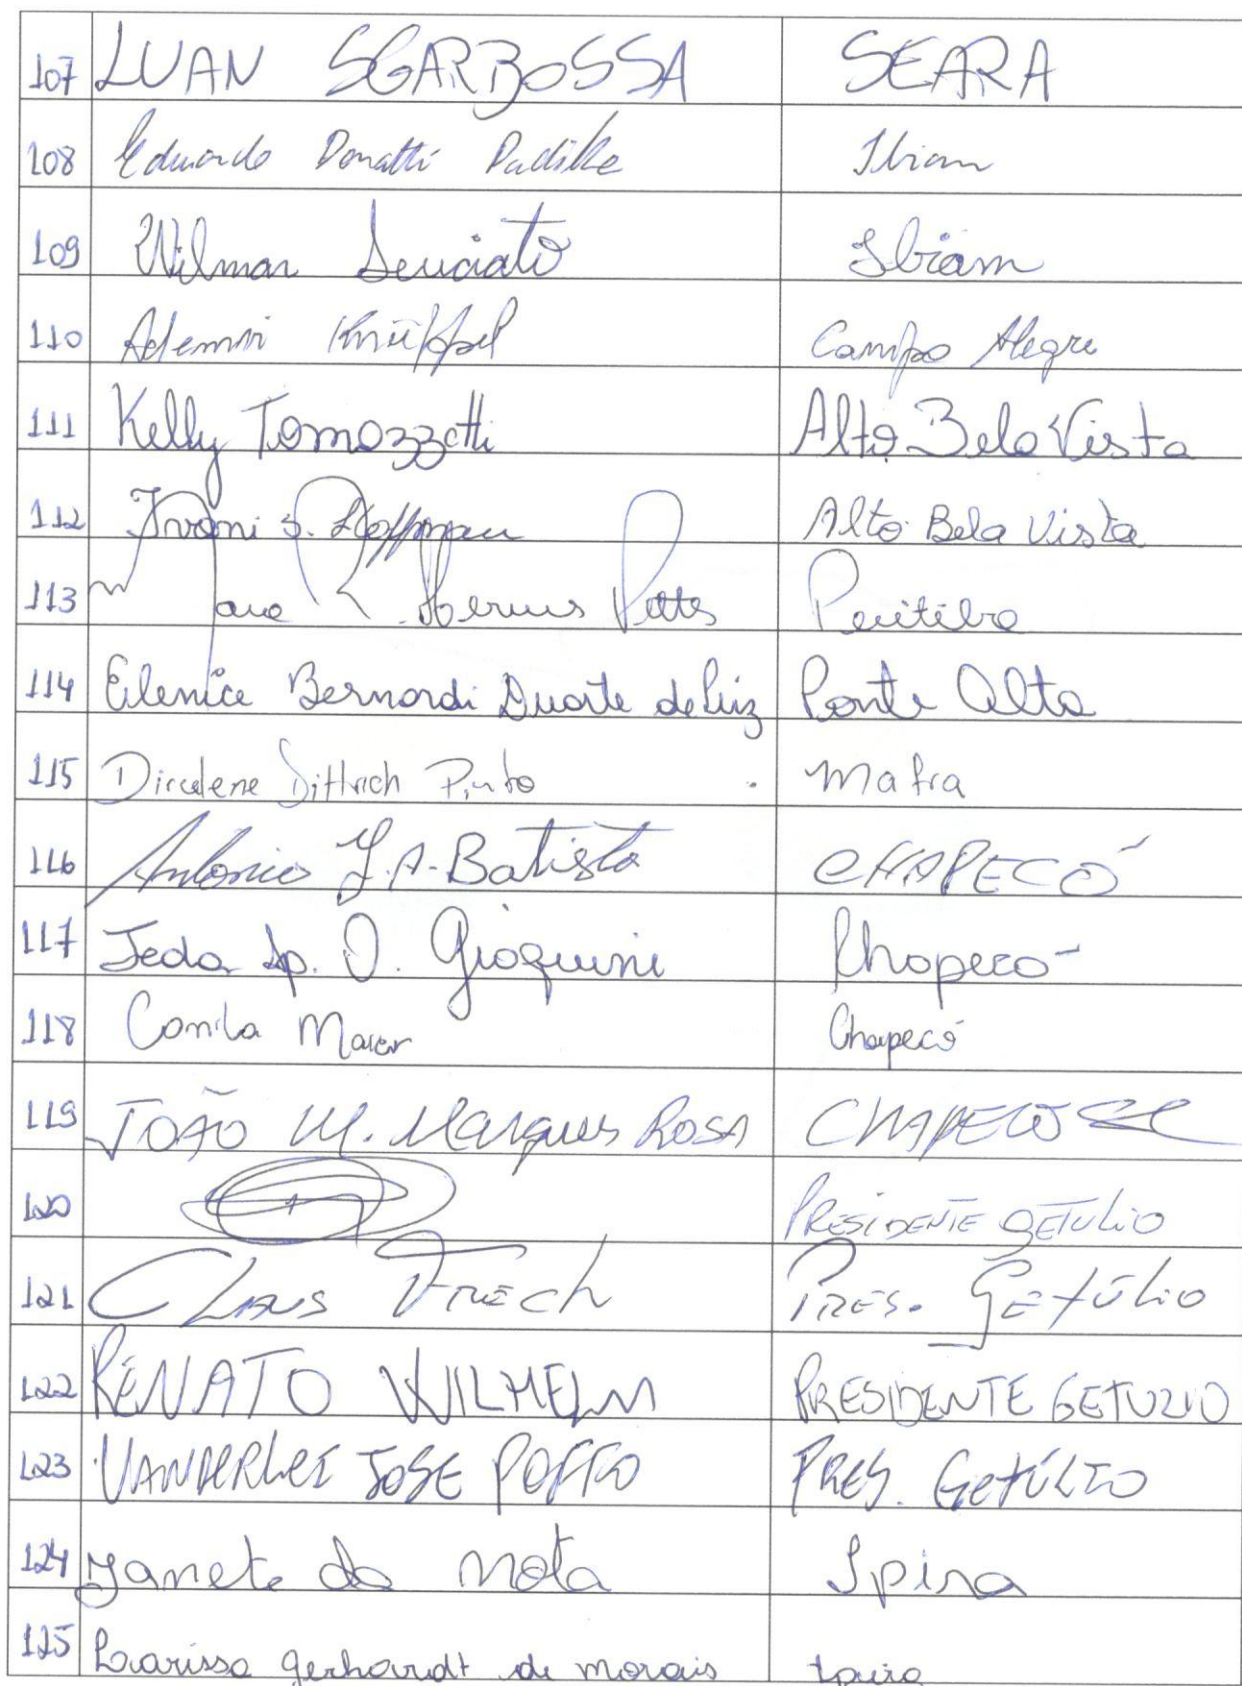 107 LUAN SGARBOSSA SEARA
108 Eduardo Donatti Padilha Ibiam
109 Wilmar Ibiam
110 Ademir Knüppel Campo Alegre
111 Kelly Tomozzetti Alto Bela Vista
112 Ivani S. Hoffmann Alto Bela Vista
113 Peritiba
114 Elenice Bernardi Duarte de Luiz Ponte Alta
115 Dircelene Dittrich Pinto Mafra
116 Antonio J.A. Batista CHAPECÓ
117 Ieda Ap. O. Gioquini Chapecó
118 Camila Maier Chapecó
119 JOÃO M. Marques ROSA CHAPECO SC
120 PRESIDENTE GETULIO
121 CLAUS FRECH PRES. GETÚLIO
122 RENATO WILHELM PRESIDENTE GETULIO
123 VANDERLEI JOSE POFFO PRES. GETÚLIO
124 Janete da Mota Ipira
125 Larissa Gerhardt de Morais Ipira